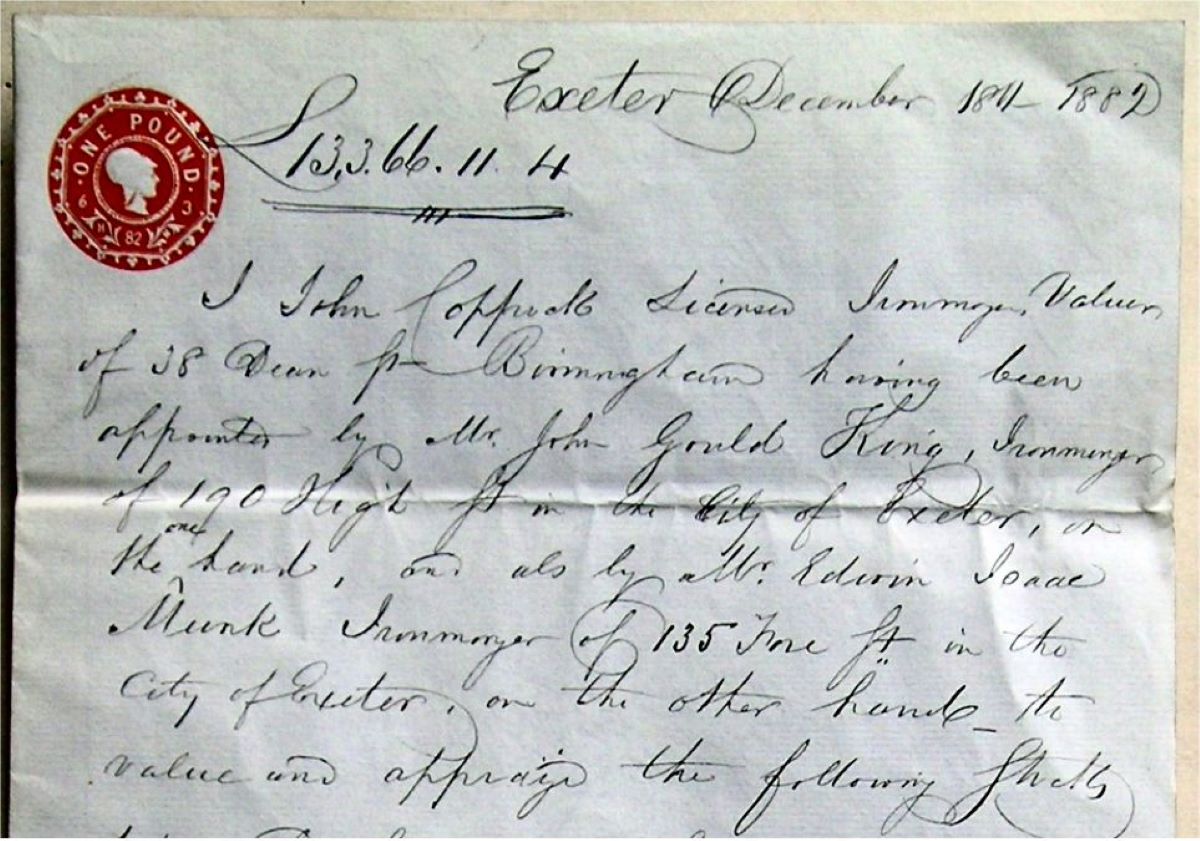 Exeter December 18th 1882
ONE POUND
£13,3.66.11.4
6 3
82
I John Coppock Licensed Ironmonger, Valuer
of 38 Dean St Birmingham having been
appointed by Mr. John Gould King, Ironmonger
of 190 High St in the City of Exeter, on
one
the hand, and also by Mr. Edwin Isaac
Munk Ironmonger of 135 Fore St in the
City of Exeter, on the other hand to
value and appraize the following